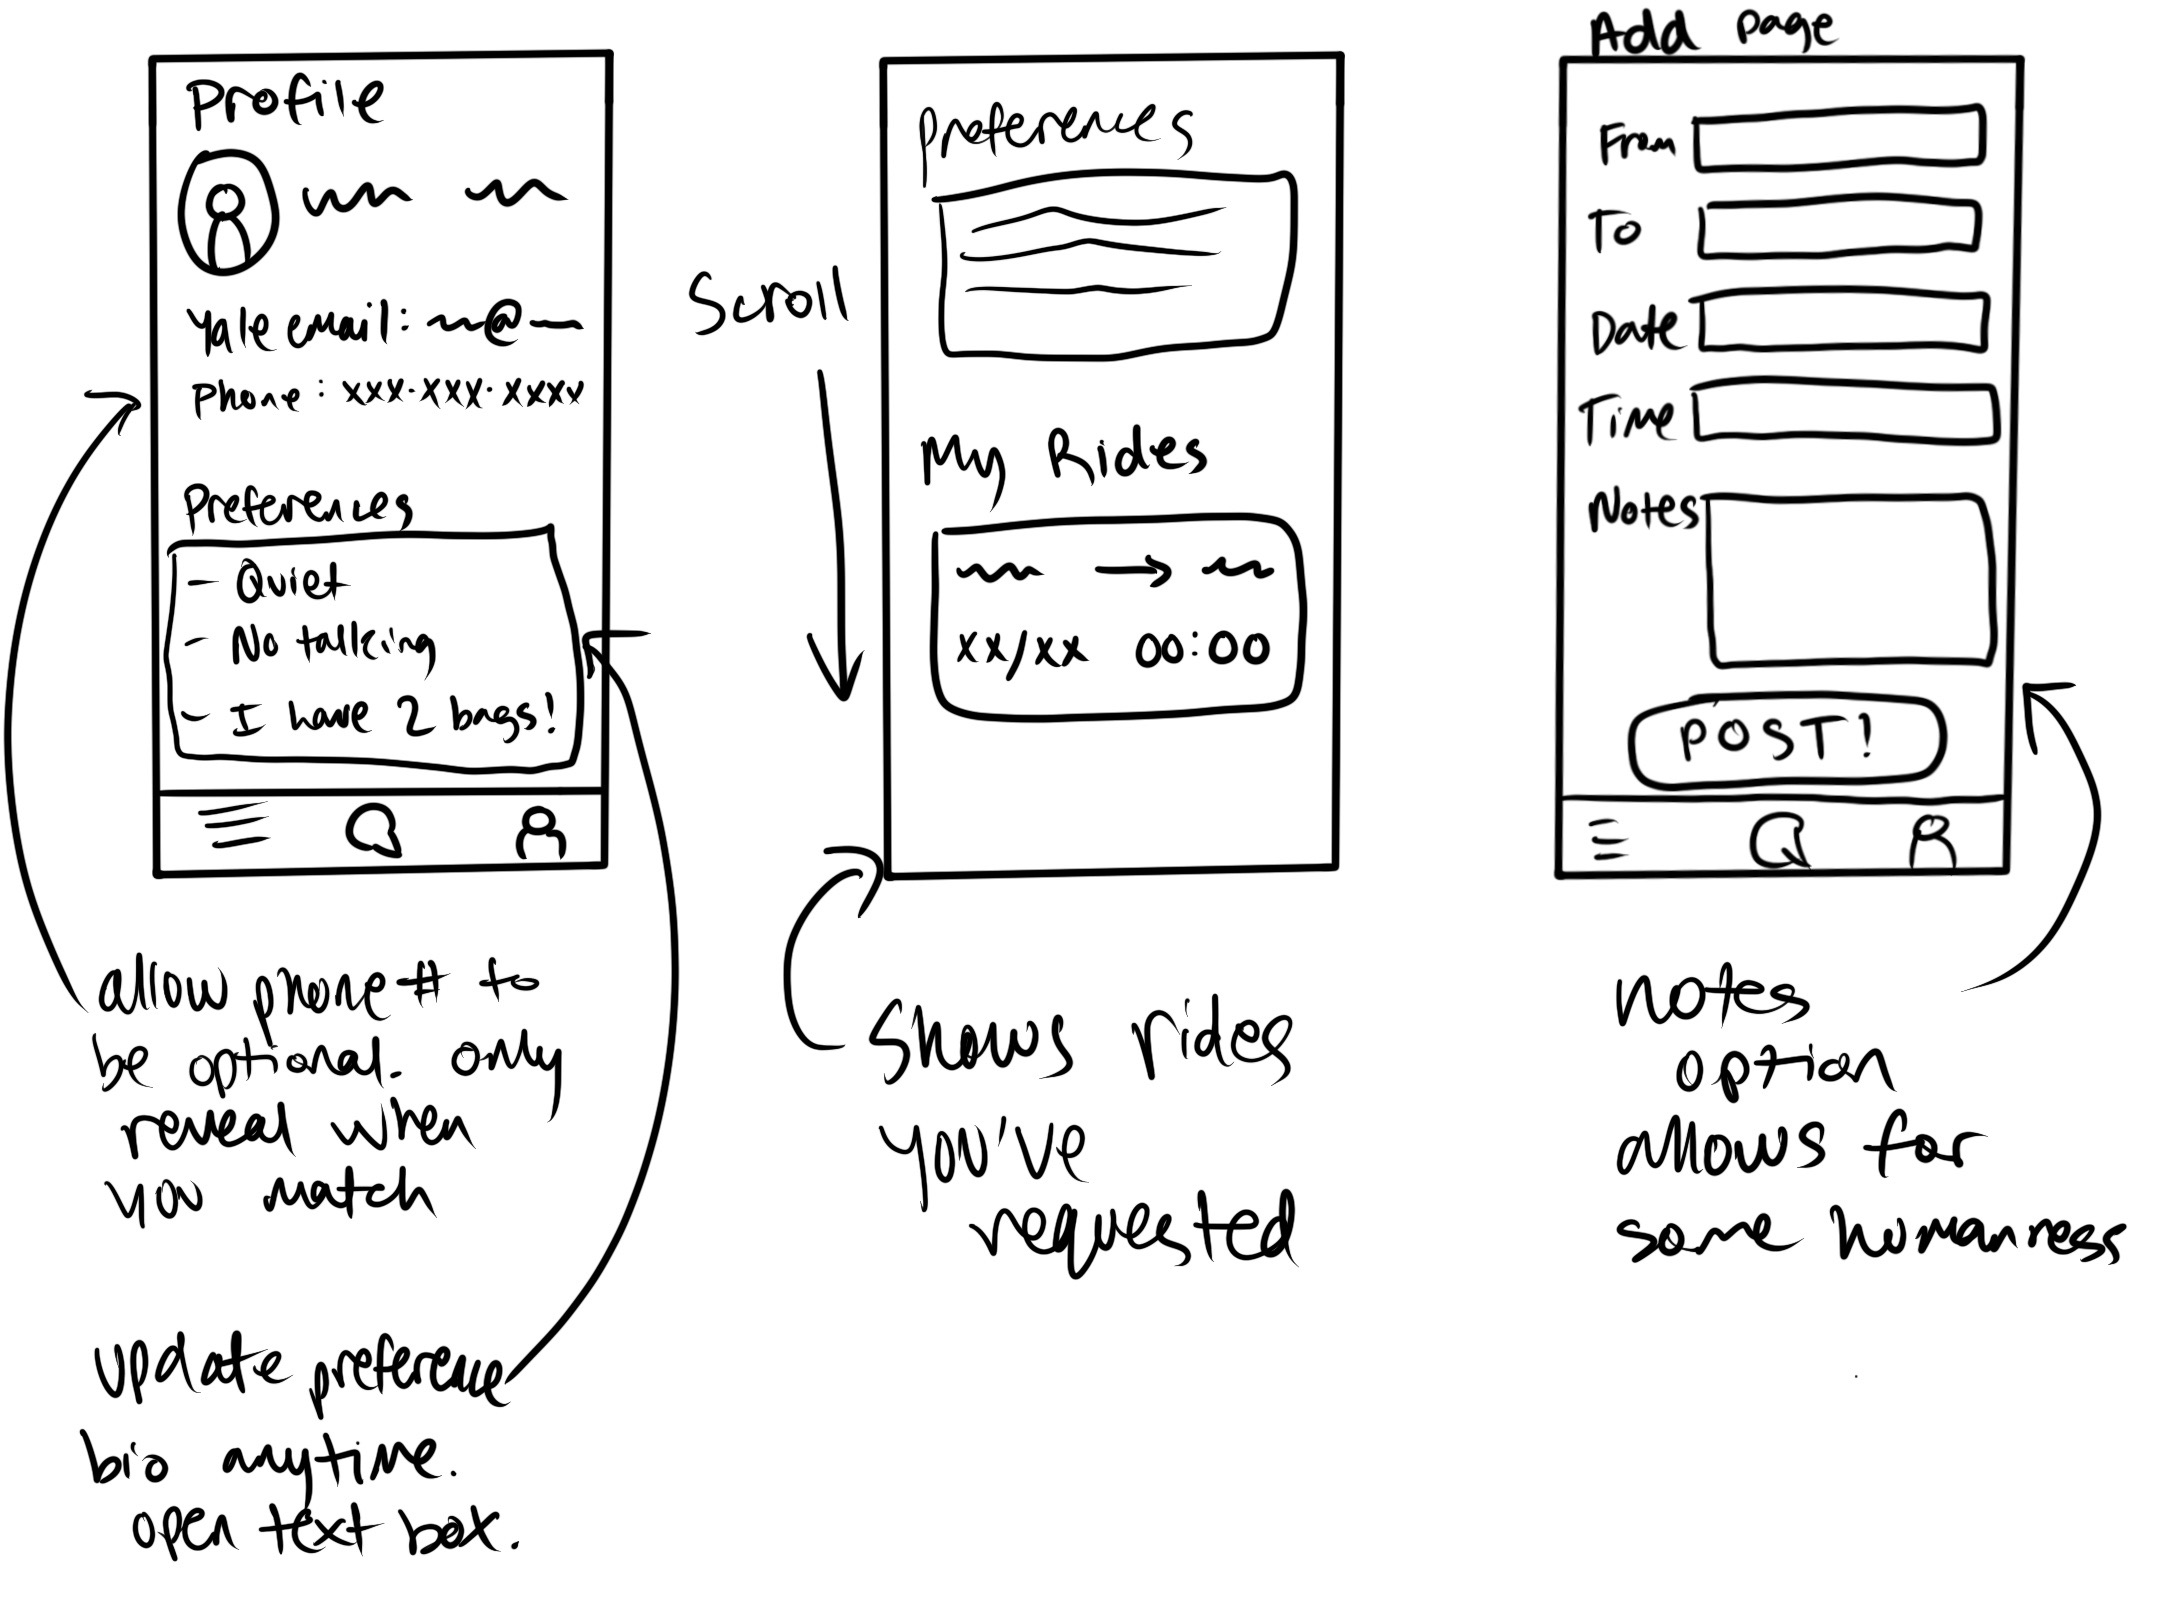 Profile
Yale email: @
Phone: xxx-xxx-xxxx
Preferences
- Quiet
- No talking
- I have 2 bags!
allow phone # to
be optional. only
reveal when
you match
update preference
bio anytime.
open text box.
Scroll
Preferences
My Rides
xx/xx 00:00
Shows rides
you've
requested
Add page
From
To
Date
Time
Notes
POST!
Notes
option
allows for
some humanness